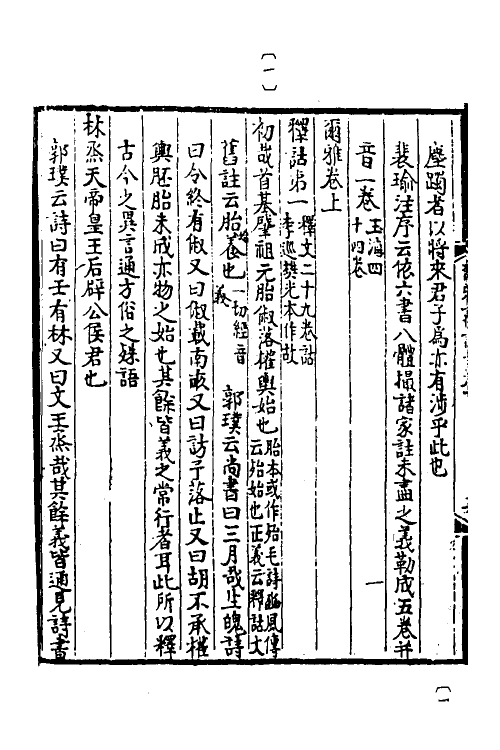 塵躅者以將來君子為亦有涉乎此也
裴瑜注序云依六書八體撮諸家註未盡之義勒成五卷并
音一卷 玉海四十四卷
一
爾雅卷上
釋詁弟一 釋文二十九卷詁李巡樊光本作故
初哉首基肇祖元胎俶落權輿始也 胎本或作殆毛詩豳風傳云殆始也正義云釋詁文
舊註云胎始養也 一切經音義 郭璞云尚書曰三月哉生魄詩
曰令終有俶又曰俶載南畝又曰訪予落止又曰胡不承權
輿胚胎未成亦物之始也其餘皆義之常行者耳此所以釋
古今之異言通方俗之殊語
林烝天帝皇王后辟公侯君也
郭璞云詩曰有壬有林又曰文王烝哉其餘義皆通見詩書